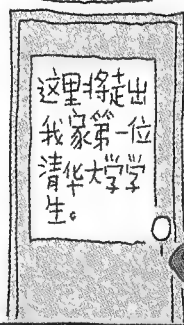 这里将走出
我家第一位
清华大学学
生。